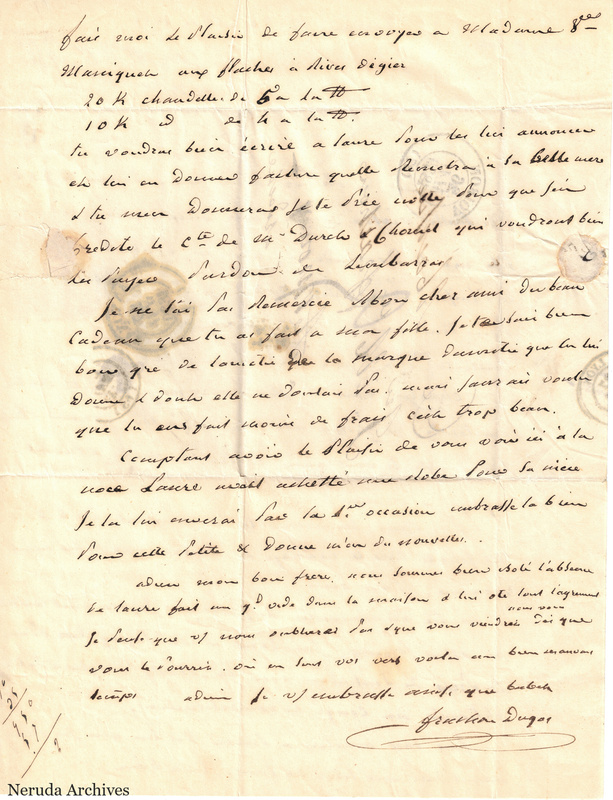 fais moi Le plaisir de faire envoyer a Madame Vve
aux flaches à Rives de gier
20 K chandelles de 5 a la ℔
10 K id de 4 a la ℔.
tu voudras bien écrire a laure pour les lui annoncer
et lui en donner facture quelle remettra à sa belle mere
& tu men donneras Je te prie notte pour que Jen
credite le Cte de Mr qui voudront bien
les payer Pardon de Lembarras
Je ne tai pas Remercié Mon cher ami du beau
Cadeau que tu as fait a ma fille. Je ten sais bien
bon gré de lamitié de la marque damitié que tu lui
Donne & dont elle ne doutais pas. mais Jaurais voulu
que tu eus fait moins de frais cest trop beau.
Comptant avoir le plaisir de vous voir ici à la
noce Laure avait achetté une Robe pour sa niece
Je la lui enverai par la 1ere occasion embrasse la bien
Pour cette petite & donne m'en des nouvelles.
adieu mon bon frere, nous sommes bien isolé l'absence
de laure fait un gd vide dans la maison & lui ote tout lagrement
Je pense que vs nous oublierez pas & que vous viendrez nous voir dès que
vous le pourrez. où en sont vos vers voila un bien mauvais
temps adieu Je vs embrasse ainsi que
Dugas
Neruda Archives